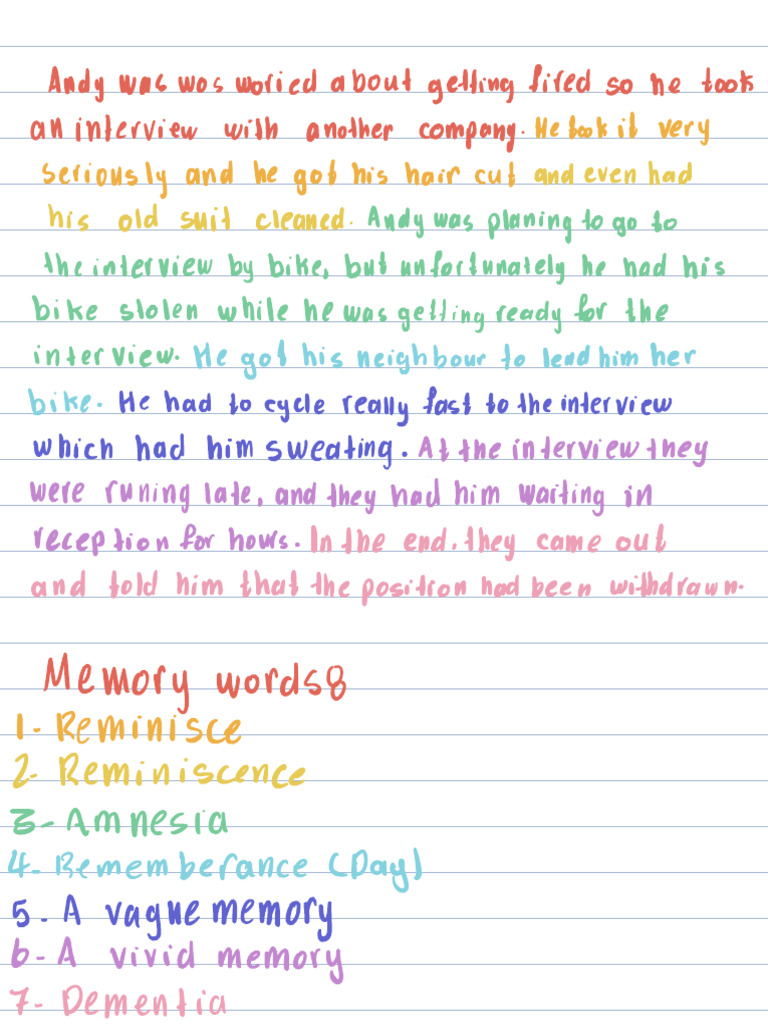 Andy was was woried about getting fired so he took
an interview with another company. He took it very
seriously and he got his hair cut and even had
his old suit cleaned. Andy was planing to go to
the interview by bike, but unfortunately he had his
bike stolen while he was getting ready for the
interview. He got his neighbour to lend him her
bike. He had to cycle really fast to the interview
which had him sweating. At the interview they
were runing late, and they had him waiting in
reception for hours. In the end, they came out
and told him that the position had been withdrawn.
Memory words8
1- Reminisce
2- Reminiscence
3- Amnesia
4- Rememberance (Day)
5- A vague memory
6- A vivid memory
7- Dementia